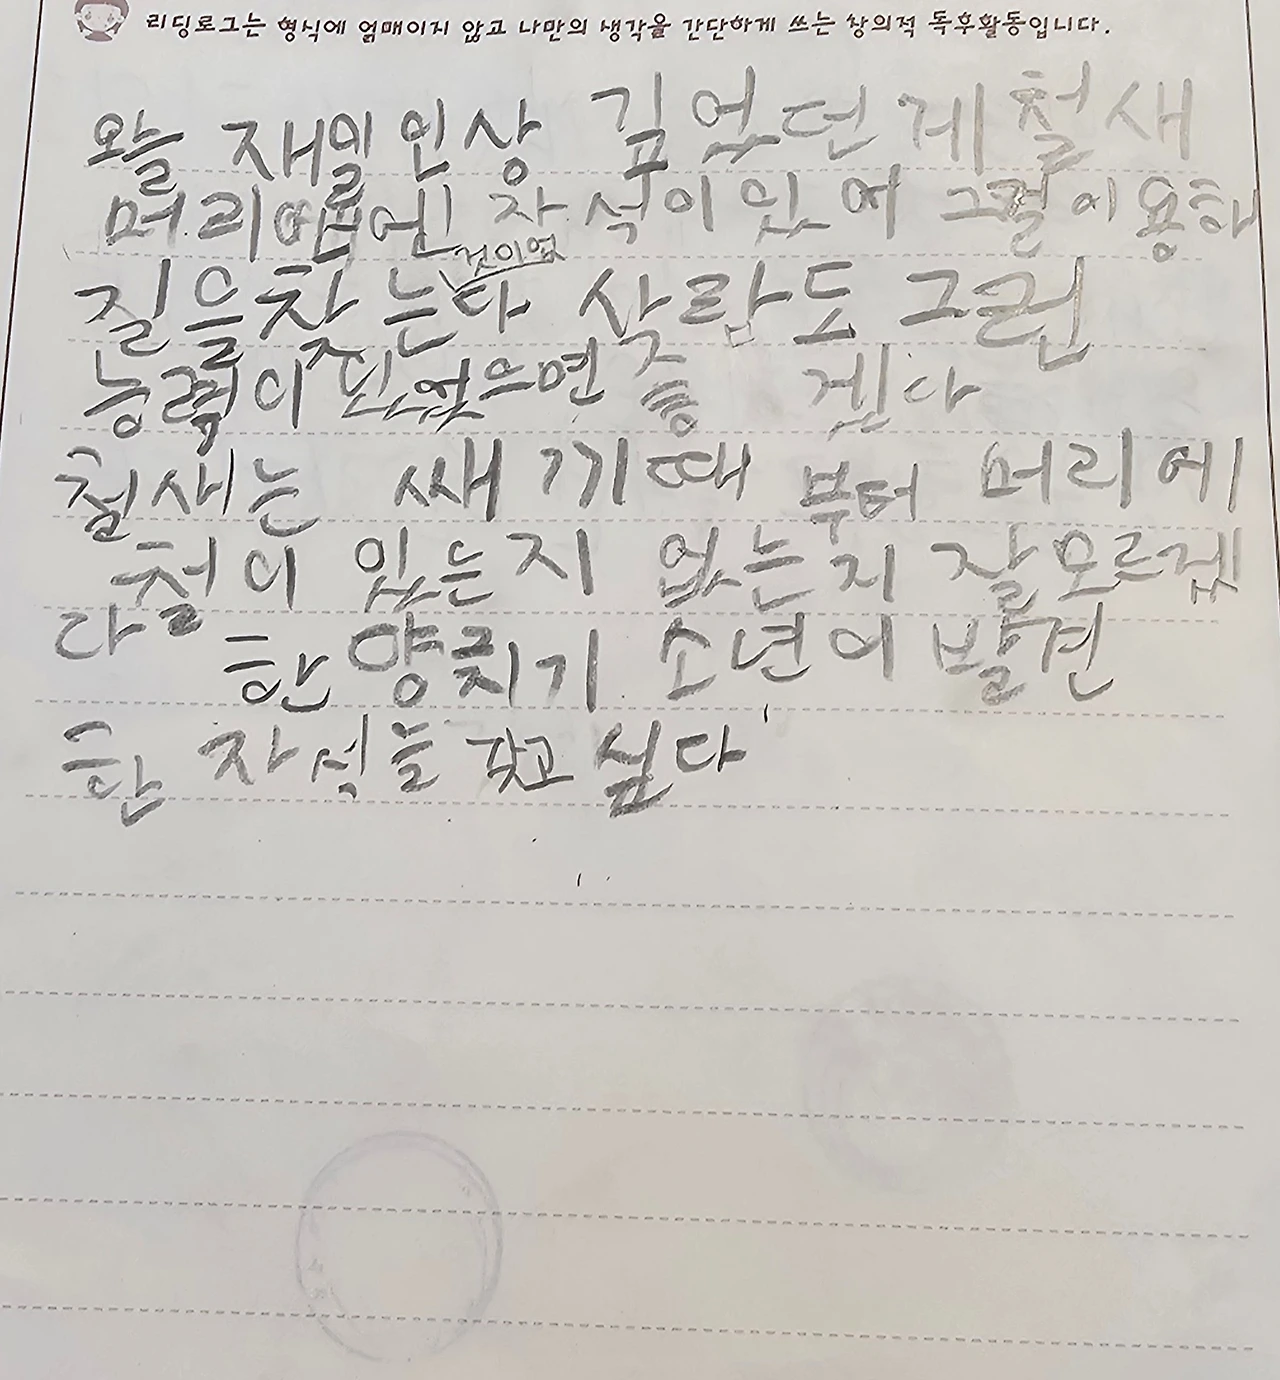 리딩로그는 형식에 얽매이지 않고 나만의 생각을 간단하게 쓰는 창의적 독후활동입니다.
오늘 재밀 인상 깊었던 게 철새
머리에 자석이 있어 그걸 이용해
길을 찾는 것이었다 사람도 그런
능력이 있었으면 좋겠다
철새는 쌔끼때 부터 머리에
철이 있는지 없는지 잘모르겠
다 한 양치기 소년이 발견
한 자석을 갖고 싶다